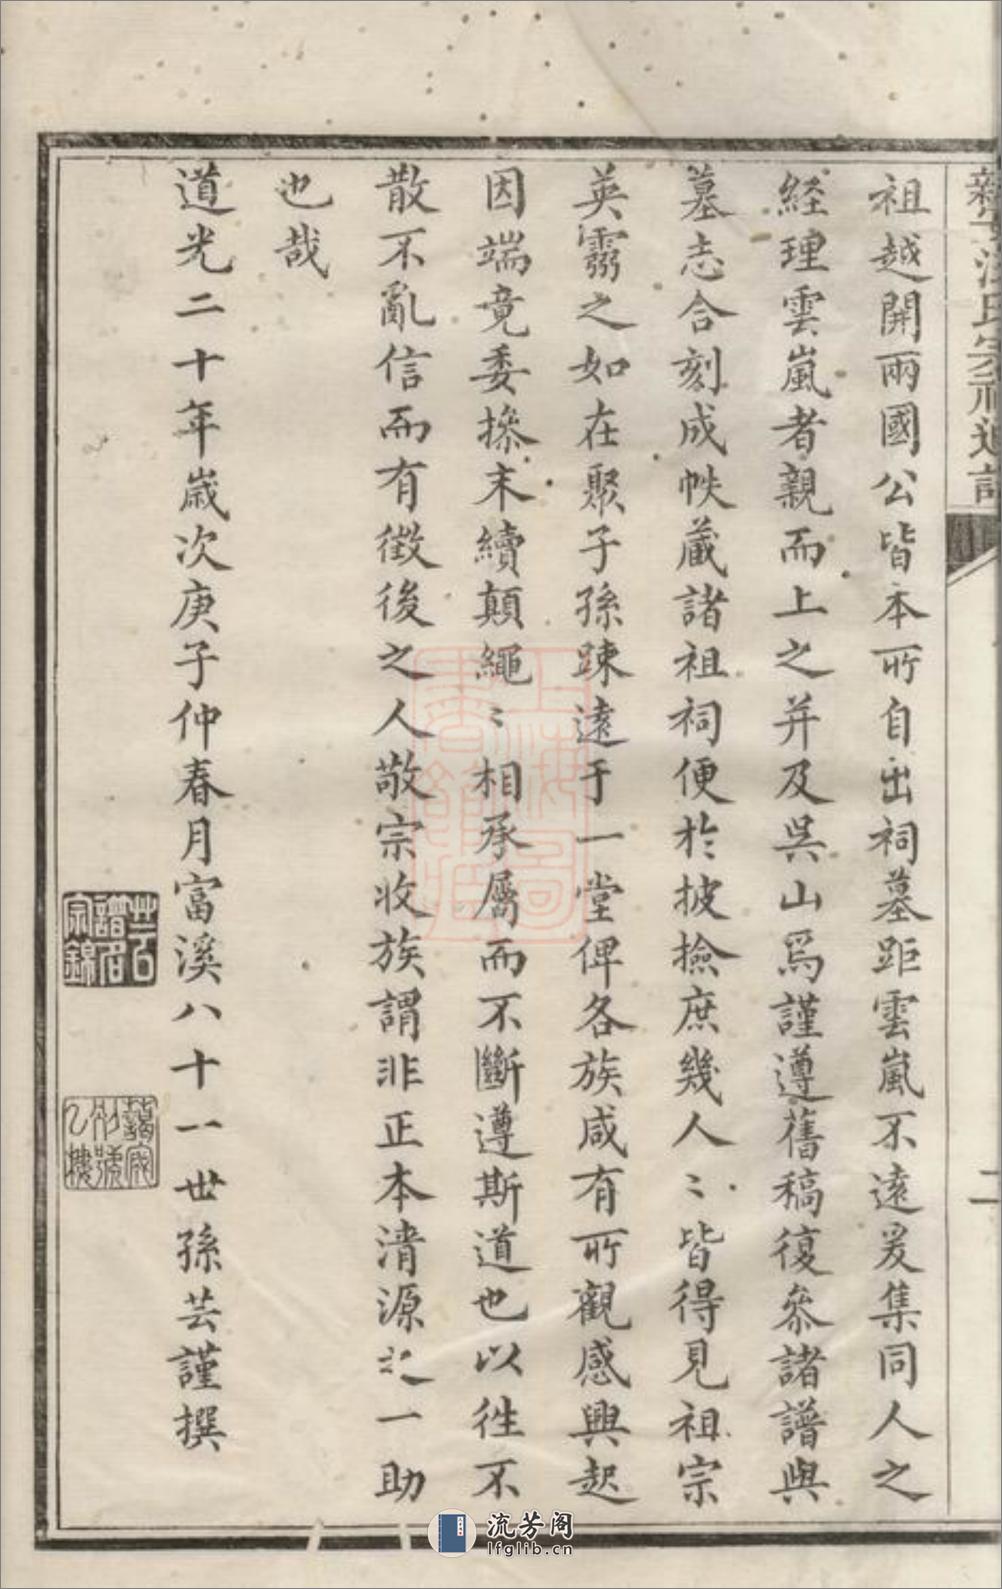 祖越開兩國公皆本所自出祠墓距雲嵐不遠爰集同人之
経理雲嵐者親而上之并及吳山爲謹遵舊稿復叅諸譜與
墓志合刻成帙蔵諸祖祠便於披撿庶幾人〻皆得見祖宗
英靈之如在聚子孫踈遠于一堂俾各族咸有所觀感興起
因端竟委摻末續顛繩〻相承屬而不斷遵斯道也以徃不
散不亂信而有徴後之人敬宗收族謂非正本清源之一助
也哉
道光二十年歲次庚子仲春月富溪八十一世孫芸謹撰
芸石
譜名
宗錦
二
上海圖
書館藏
流芳阁
lfglib.cn